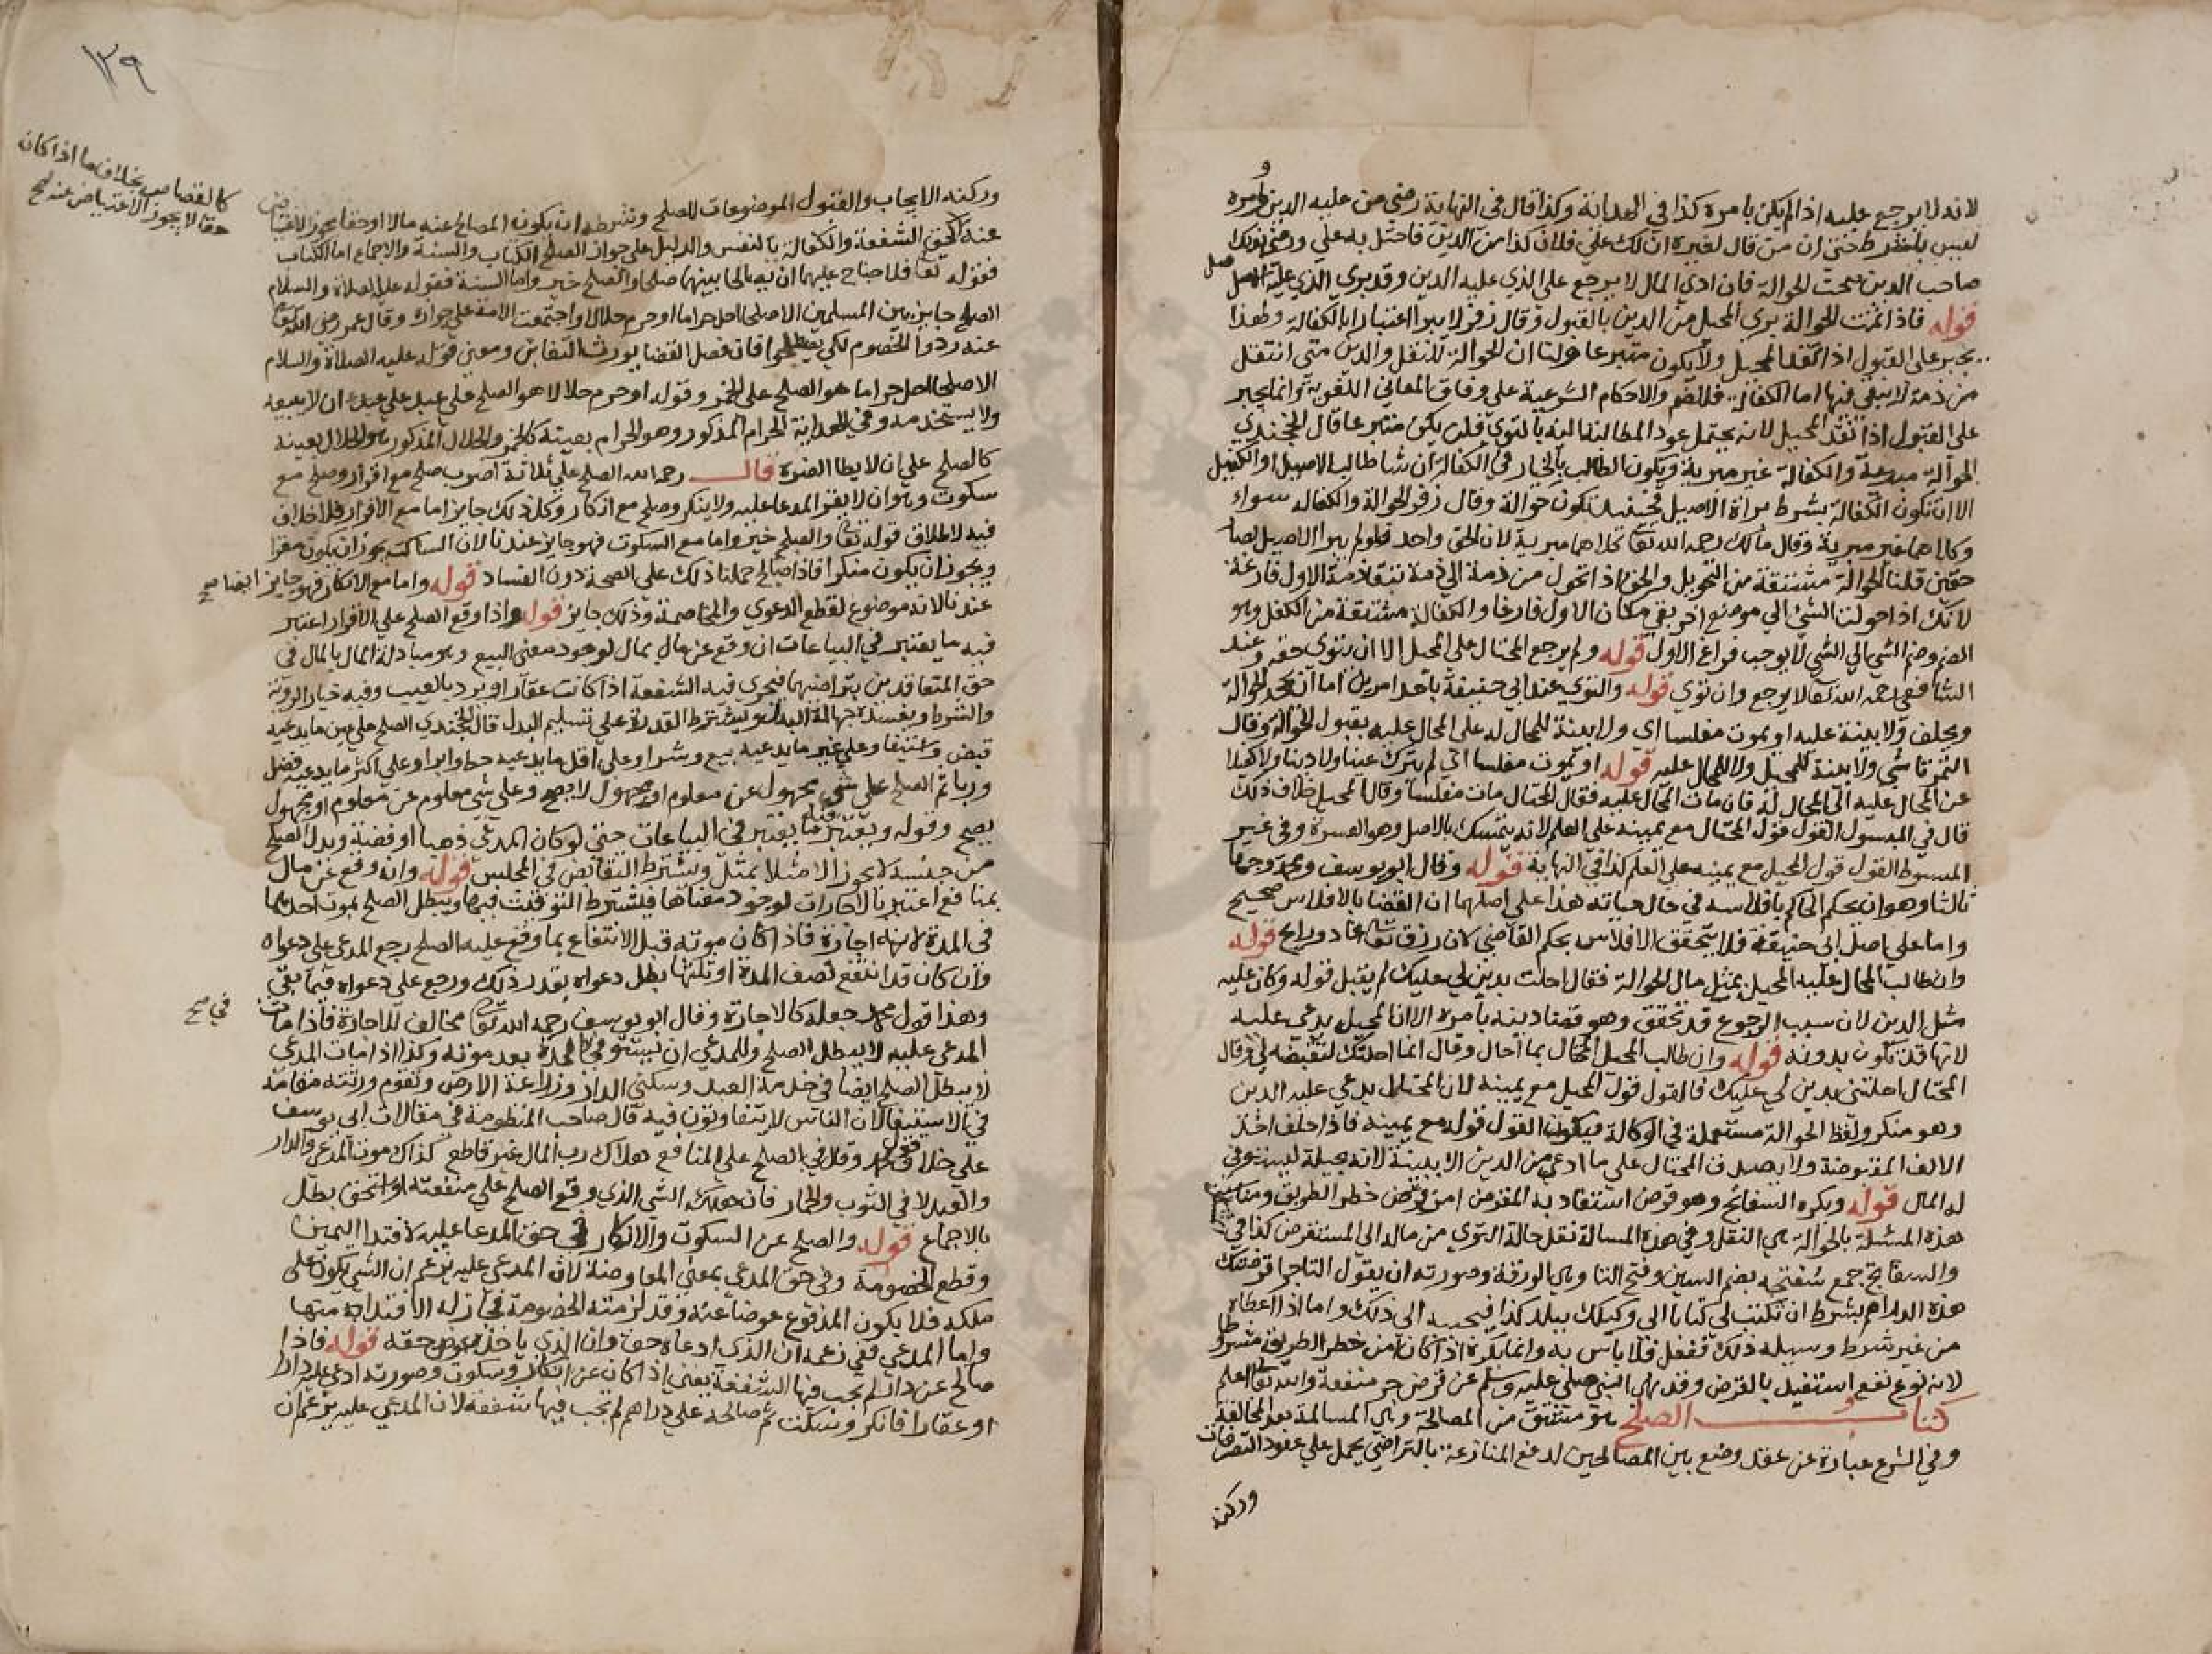 لانه لا يرجع عليه اذا لم يكن بامره كذا في الهداية وكذا قال في النهاية رضى من عليه الدين وامره
ليس بشرط حتى ان من قال لغيره ان لك على فلان كذا من الدين فاحتل به علي ورضى بذلك
صاحب الدين صحت الحوالة فان ادى المال لا يرجع على الذي عليه الدين وقد بري الذي عليه الاصل
قوله فاذا تمت الحوالة بري المحيل من الدين بالقبول وقال زفر لا يبرا اعتبارا بالكفالة ولهذا
يجبر على القبول اذا نقد المحيل ولا يكون متبرعا ولنا ان الحوالة للنقل والدين متى انتقل
من ذمة لا يبقى فيها اما الكفالة فللضم والاحكام الشرعية على وفاق المعاني اللغوية وانما يجبر
على القبول اذا نقد المحيل لانه يحتمل عود المطالبة اليه بالتوى فلم يكن متبرعا قال الخجندي
الحوالة مبرية والكفالة غير مبرية ويكون الطالب بالخيار في الكفالة ان شا طالب الاصيل او الكفيل
الا ان تكون الكفالة بشرط براة الاصيل فحينئذ تكون حوالة وقال زفر الحوالة والكفالة سواء
وكلاهما غير مبرية وقال مالك رحمه الله تعالى كلاهما مبرية لان الحق واحد فلو لم يبرا الاصيل لصار
حقين قلنا الحوالة مشتقة من التحويل والحق اذا تحول من ذمة الى ذمة تبقا ذمة الاول فارغة
لانك اذا حولت الشي الى موضع اخر بقي مكان الاول فارغا والكفالة مشتقة من الكفل وهو
الضم وضم الشي الى الشي لا يوجب فراغ الاول قوله ولم يرجع المحتال على المحيل الا ان يتوى حقه وعند
الشافعي رحمه الله تعالى لا يرجع وان توى قوله والتوى عند ابي حنيفة باحد امرين اما ان يجحد الحوالة
ويحلف ولا بينة عليه او يموت مفلسا اى ولا بينة للمحال له على المحال عليه بقبول الحوالة وقال
التمرتاشي ولا بينة للمحيل ولا للمحال عليه قوله او يموت مفلسا اى لم يترك عينا ولا دينا ولا كفيلا
عن المحال عليه الى المحال له فان مات المحال عليه فقال المحتال مات مفلسا وقال المحيل خلاف ذلك
قال في المبسوط القول قول المحتال مع يمينه على العلم لانه يتمسك بالاصل وهو العسرة وفي غير
المبسوط القول قول المحيل مع يمينه على العلم كذا في النهاية قوله وقال ابو يوسف ومحمد وجها
ثالثا وهو ان يحكم الحاكم بافلاسه في حال حياته هذا على اصلهما ان القضا بالافلاس صحيح
واما على اصل ابى حنيفة فلا يتحقق الافلاس بحكم القاضي لان رزق الله تعالى غاد ورايح قوله
وان طالب المحال عليه المحيل بمثل مال الحوالة فقال احلت بدين لي عليك لم يقبل قوله وكان عليه
مثل الدين لان سبب الرجوع قد تحقق وهو قضا دينه بامره الا ان المحيل يدعي عليه
لانها قد تكون بدونه قوله وان طالب المحيل المحتال بما احال وقال انما احلتك لتقبضه لي وقال
المحتال احلتني بدين لي عليك فالقول قول المحيل مع يمينه لان المحتال يدعي عليه الدين
وهو منكر ولفظ الحوالة مستعملة في الوكالة فيكون القول قوله مع يمينه فاذا حلف اخذ
الالف المقبوضة ولا يصدق المحتال على ما ادعى من الدين الا ببينة لانه
له المال قوله ويكره السفاتج وهو قرض استفاد به المقرض امن خطر الطريق ومناسبة
هذه المسئلة بالحوالة هي النقل وفي هذه المسالة نقل حالة التوى من ماله الى المستقرض كذا في
والسفاتج جمع سفتجه بضم السين وفتح التا وهي الورقة وصورته ان يقول التاجر اقرضتك
هذه الدراهم بشرط ان تكتب لي كتابا الى وكيلك ببلد كذا فيجيبه الى ذلك واما اذا اعطاه
من غير شرط وسيله ذلك ففعل فلا باس به وانما يكره اذا كان امن خطر الطريق مشروطا
لانه نوع نفع استفيد بالقرض وقد نهى النبي صلى عليه وسلم عن قرض جر منفعة والله تعالى اعلم
كتاب الصلح هو مشتق من المصالحة وهي المسالمة بعد المخالفة
وفي الشرع عبارة عن عقد وضع بين المصالحين لدفع المنازعة بالتراضي يحمل على عقود التصرفات
وركنه
١٣٩
كالقصاص بخلاف ما اذا كان
حقا لا يجوز الاعتياض عنه صح
وركنه الايجاب والقبول الموضوعات للصلح وشرطه ان يكون المصالح عنه مالا او حقا يجوز الاعتياض
عنه كحق الشفعة والكفالة بالنفس والدليل على جواز الصلح الكتاب والسنة والاجماع اما الكتاب
فقوله تعالى فلا جناح عليهما ان يصالحا بينهما صلحا والصلح خير واما السنة فقوله عليه الصلاة والسلام
الصلح جايز بين المسلمين الا صلحا احل حراما او حرم حلالا واجتمعت الامة على جوازه وقال عمر رضي الله تعالى
عنه ردوا الخصوم لكي يصطلحوا فان فصل القضا يورث التغاش ومعنى قوله عليه الصلاة والسلام
الا صلحا احل حراما هو الصلح على الخمر وقوله او حرم حلالا هو الصلح على عبد على ان لا يبيعه
ولا يستخدمه وفي الهداية الحرام المذكور وهو الحرام بعينه كالخمر والحلال المذكور هو الحلال بعينه
كالصلح على ان لا يطا الضرة قال رحمه الله الصلح على ثلاثة اضرب صلح مع اقرار وصلح مع
سكوت وهو ان لا يقر المدعا عليه ولا ينكر وصلح مع انكار وكل ذلك جايز اما مع الاقرار فلا خلاف
فيه لاطلاق قوله تعالى والصلح خير واما مع السكوت فهو جايز عندنا لان الساكت يجوز ان يكون مقرا
ويجوز ان يكون منكرا فاذا صالح حملنا ذلك على الصحة دون الفساد قوله واما مع الانكار فهو جايز ايضا صح
عندنا لانه موضوع لقطع الدعوى والمخاصمة وذلك جايز قوله واذا وقع الصلح على الاقرار اعتبر
فيه ما يعتبر في البياعات ان وقع عن مال بمال لوجود معنى البيع وهو مبادلة المال بالمال في
حق المتعاقدين بتراضيهما فيجرى فيه الشفعة اذا كانت عقارا ويرد بالعيب وفيه خيار الروية
والشرط ويفسده جهالة البدل ويشترط القدرة على تسليم البدل قال الخجندي الصلح على عين ما يدعيه
قبض واستيفا وعلى غير ما يدعيه بيع وشرا وعلى اقل ما يدعيه حط وابرا وعلى اكثر ما يدعيه فضل
وربا ثم الصلح على شي مجهول عن معلوم او مجهول لا يصح وعلى شي معلوم عن معلوم او مجهول
يصح وقوله ويعتبر فيه ما يعتبر في البياعات حتى لو كان المدعى ذهبا او فضة وبدل الصلح
من جنسه لا يجوز الا مثلا بمثل ويشترط التقابض في المجلس قوله وان وقع عن مال
بمنافع اعتبر بالاجارات لوجود معناها فيشترط التوقيت فيها ويبطل الصلح بموت احدهما
في المدة لانه اجازة فاذا كان موته قبل الانتفاع بما وقع عليه الصلح رجع المدعي على دعواه
وان كان قد انتفع نصف المدة او ثلثها بطل دعواه بقدر ذلك ورجع على دعواه فيما بقي
وهذا قول محمد جعله كالاجارة وقال ابو يوسف رحمه الله تعالى مخالف للاجارة فاذا مات في صح
المدعى عليه لا يبطل الصلح وللمدعي ان يستوفي المدة بعد موته وكذا اذا مات المدعي
لا يبطل الصلح ايضا في خدمة العبد وسكنى الدار وزراعة الارض وتقوم ورثته مقامه
في الاستيفا لان الناس لا يتفاوتون فيه قال صاحب المنظومة في مقالات ابي يوسف
على خلاف قول محمد وقال في الصلح على المنافع هلاك رب المال غير قاطع كذاك موت المدعي والدار
والعبد لا في الثوب والحمار فان هلك الشي الذي وقع الصلح على منفعته او استحق بطل
بالاجماع قوله والصلح عن السكوت والانكار في حق المدعا عليه لافتدا اليمين
وقطع الخصومة وفي حق المدعي بمعنى المعاوضة لان المدعى عليه يزعم ان الشي يكون على
ملكه فلا يكون المدفوع عوضا عنه وقد لزمته الخصومة فجاز له الافتدا منها
واما المدعي ففي زعمه ان الذي ادعاه حق وان الذي ياخذ عوض حقه قوله فاذا
صالح عن دار لم يجب فيها الشفعة يعني اذا كان عن انكار وسكوت وصورته ادعى عليه دارا
او عقارا فانكر وسكت ثم صالحه على دراهم لم تجب فيها شفعة لان المدعى عليه يزعم ان